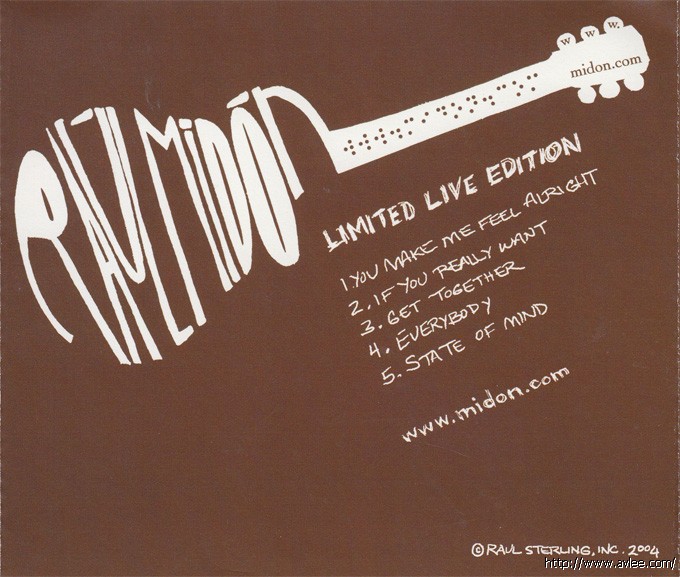 RAÚL MIDÓN
w w w.
midon.com
LIMITED LIVE EDITION
1. YOU MAKE ME FEEL ALRIGHT
2. IF YOU REALLY WANT
3. GET TOGETHER
4. EVERYBODY
5. STATE OF MIND
www.midon.com
© RAUL STERLING, INC. 2004
http://www.avlee.com/